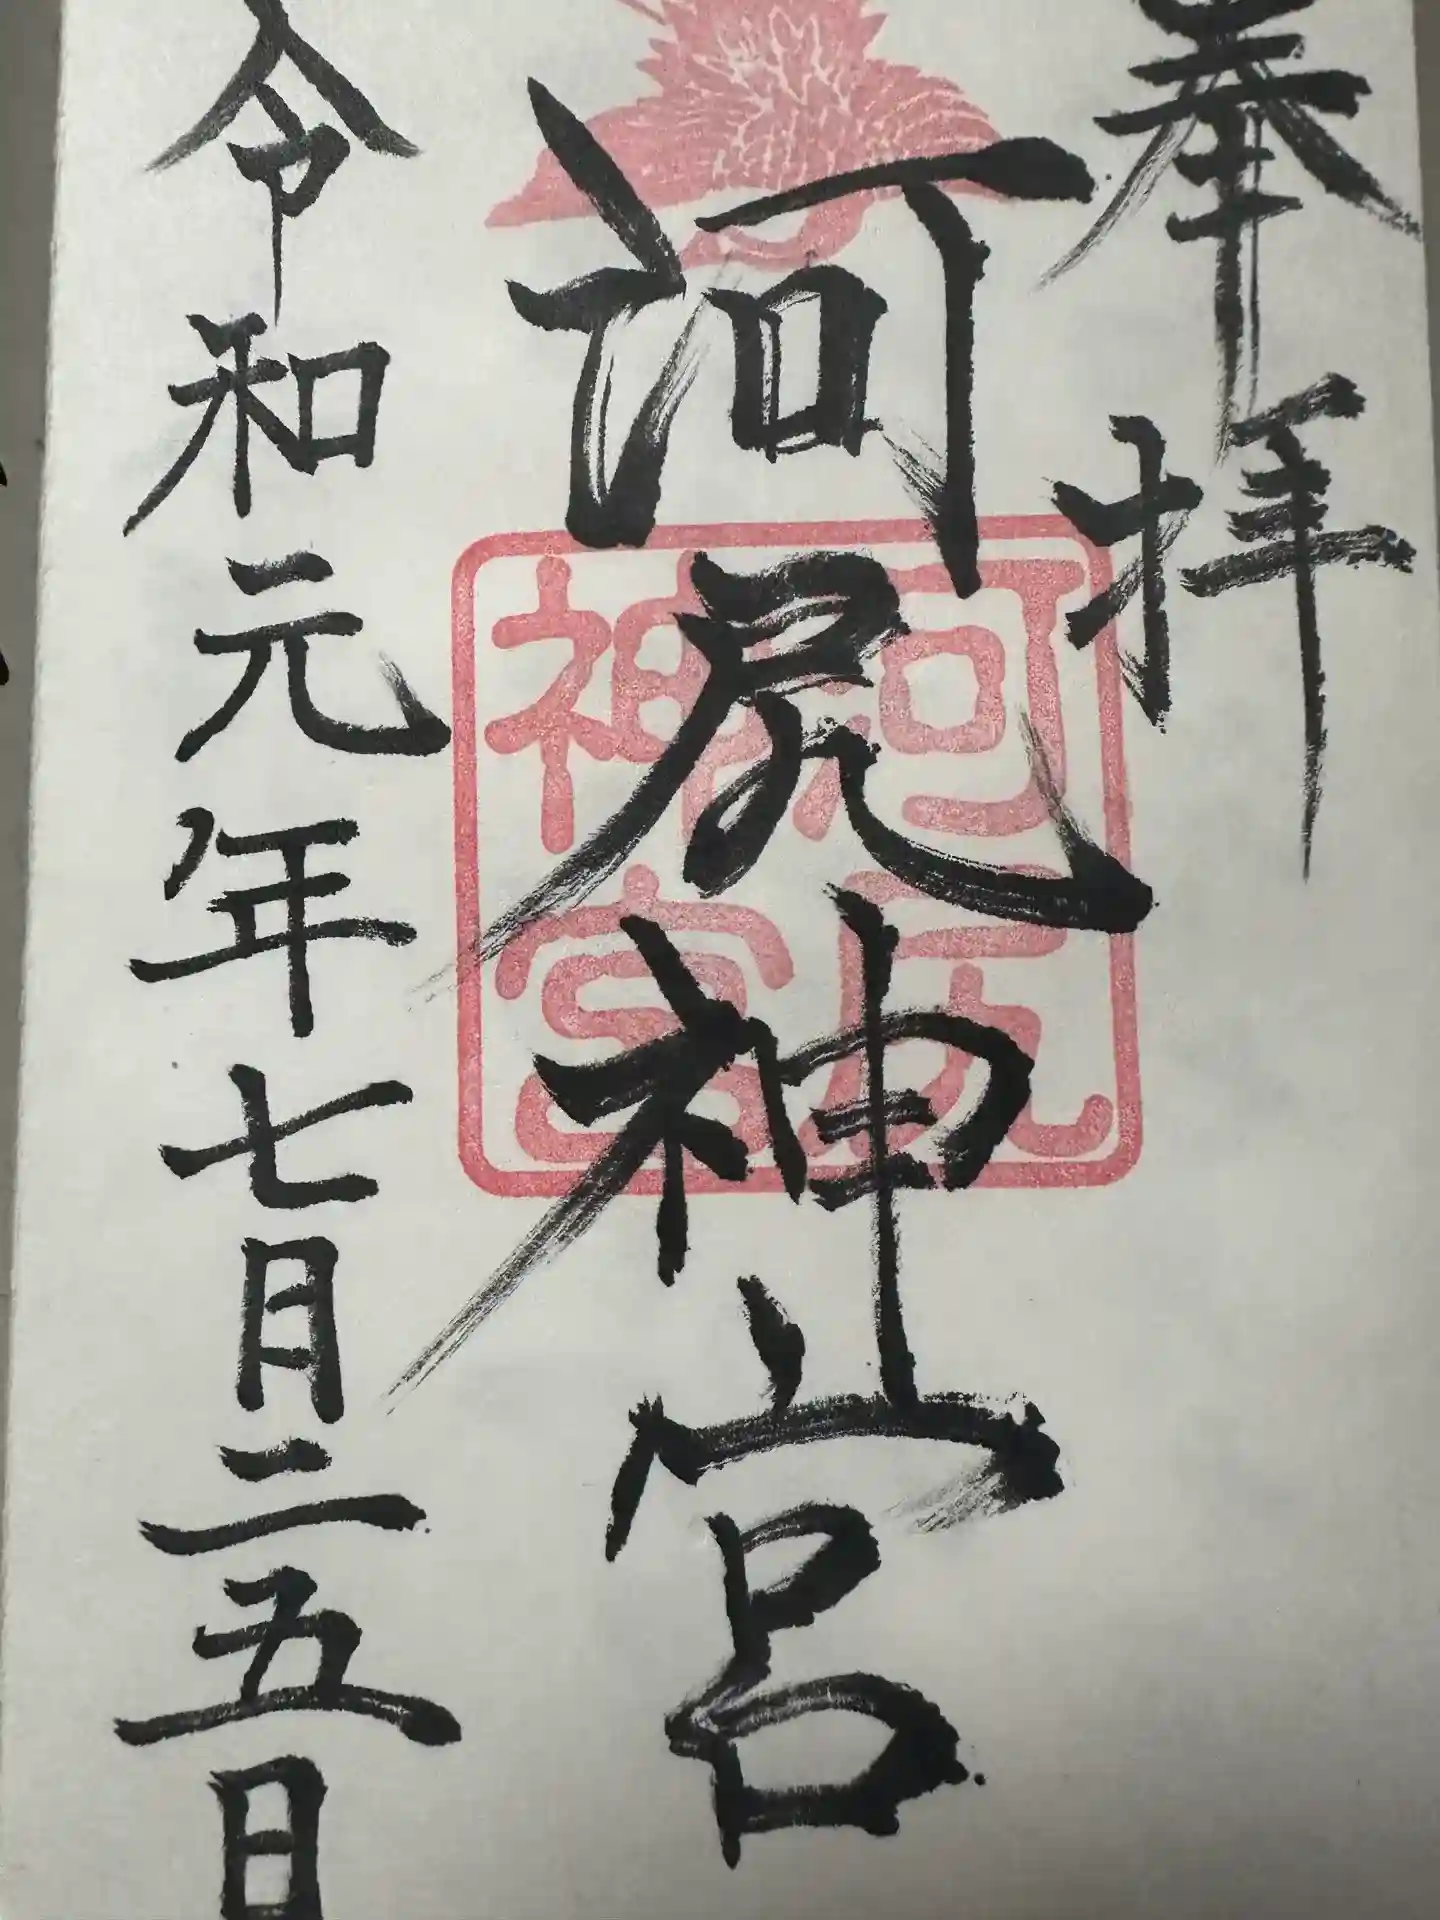 奉拝
河尻神宮
河尻神宮
令和元年七月二五日